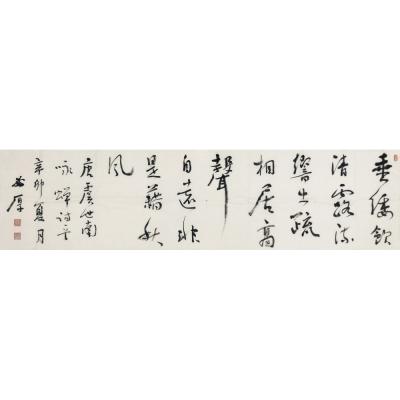 垂緌飲
清露流
響出疏
桐居高
聲
自遠非
是藉秋
風
唐虞世南
咏蟬詩
辛卯夏月
厚